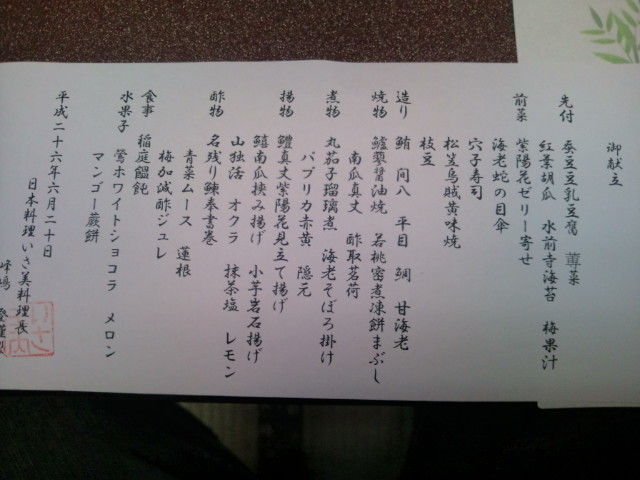 御献立
先付 蚕豆豆乳豆腐 蓴菜
紅葉胡瓜 水前寺海苔 梅果汁
前菜 紫陽花ゼリー寄せ
海老蛇の目傘
穴子寿司
松笠烏賊黄味焼
枝豆
造り 鮪 間八 平目 鯛 甘海老
焼物 鱸蓼醤油焼 若桃蜜煮凍餅まぶし
南瓜真丈 酢取茗荷
煮物 丸茄子瑠璃煮 海老そぼろ掛け
パプリカ赤黄 隠元
揚物 鱧真丈紫陽花見立て揚げ
鱚南瓜挟み揚げ 小芋岩石揚げ
山独活 オクラ 抹茶塩 レモン
酢物 名残り鰊奉書巻
青菜ムース 蓮根
梅加減酢ジュレ
食事 稲庭饂飩
水果子 鶯ホワイトショコラ メロン
マンゴー蕨餅
平成二十六年六月二十日
日本料理いさ美料理長
峰嶋